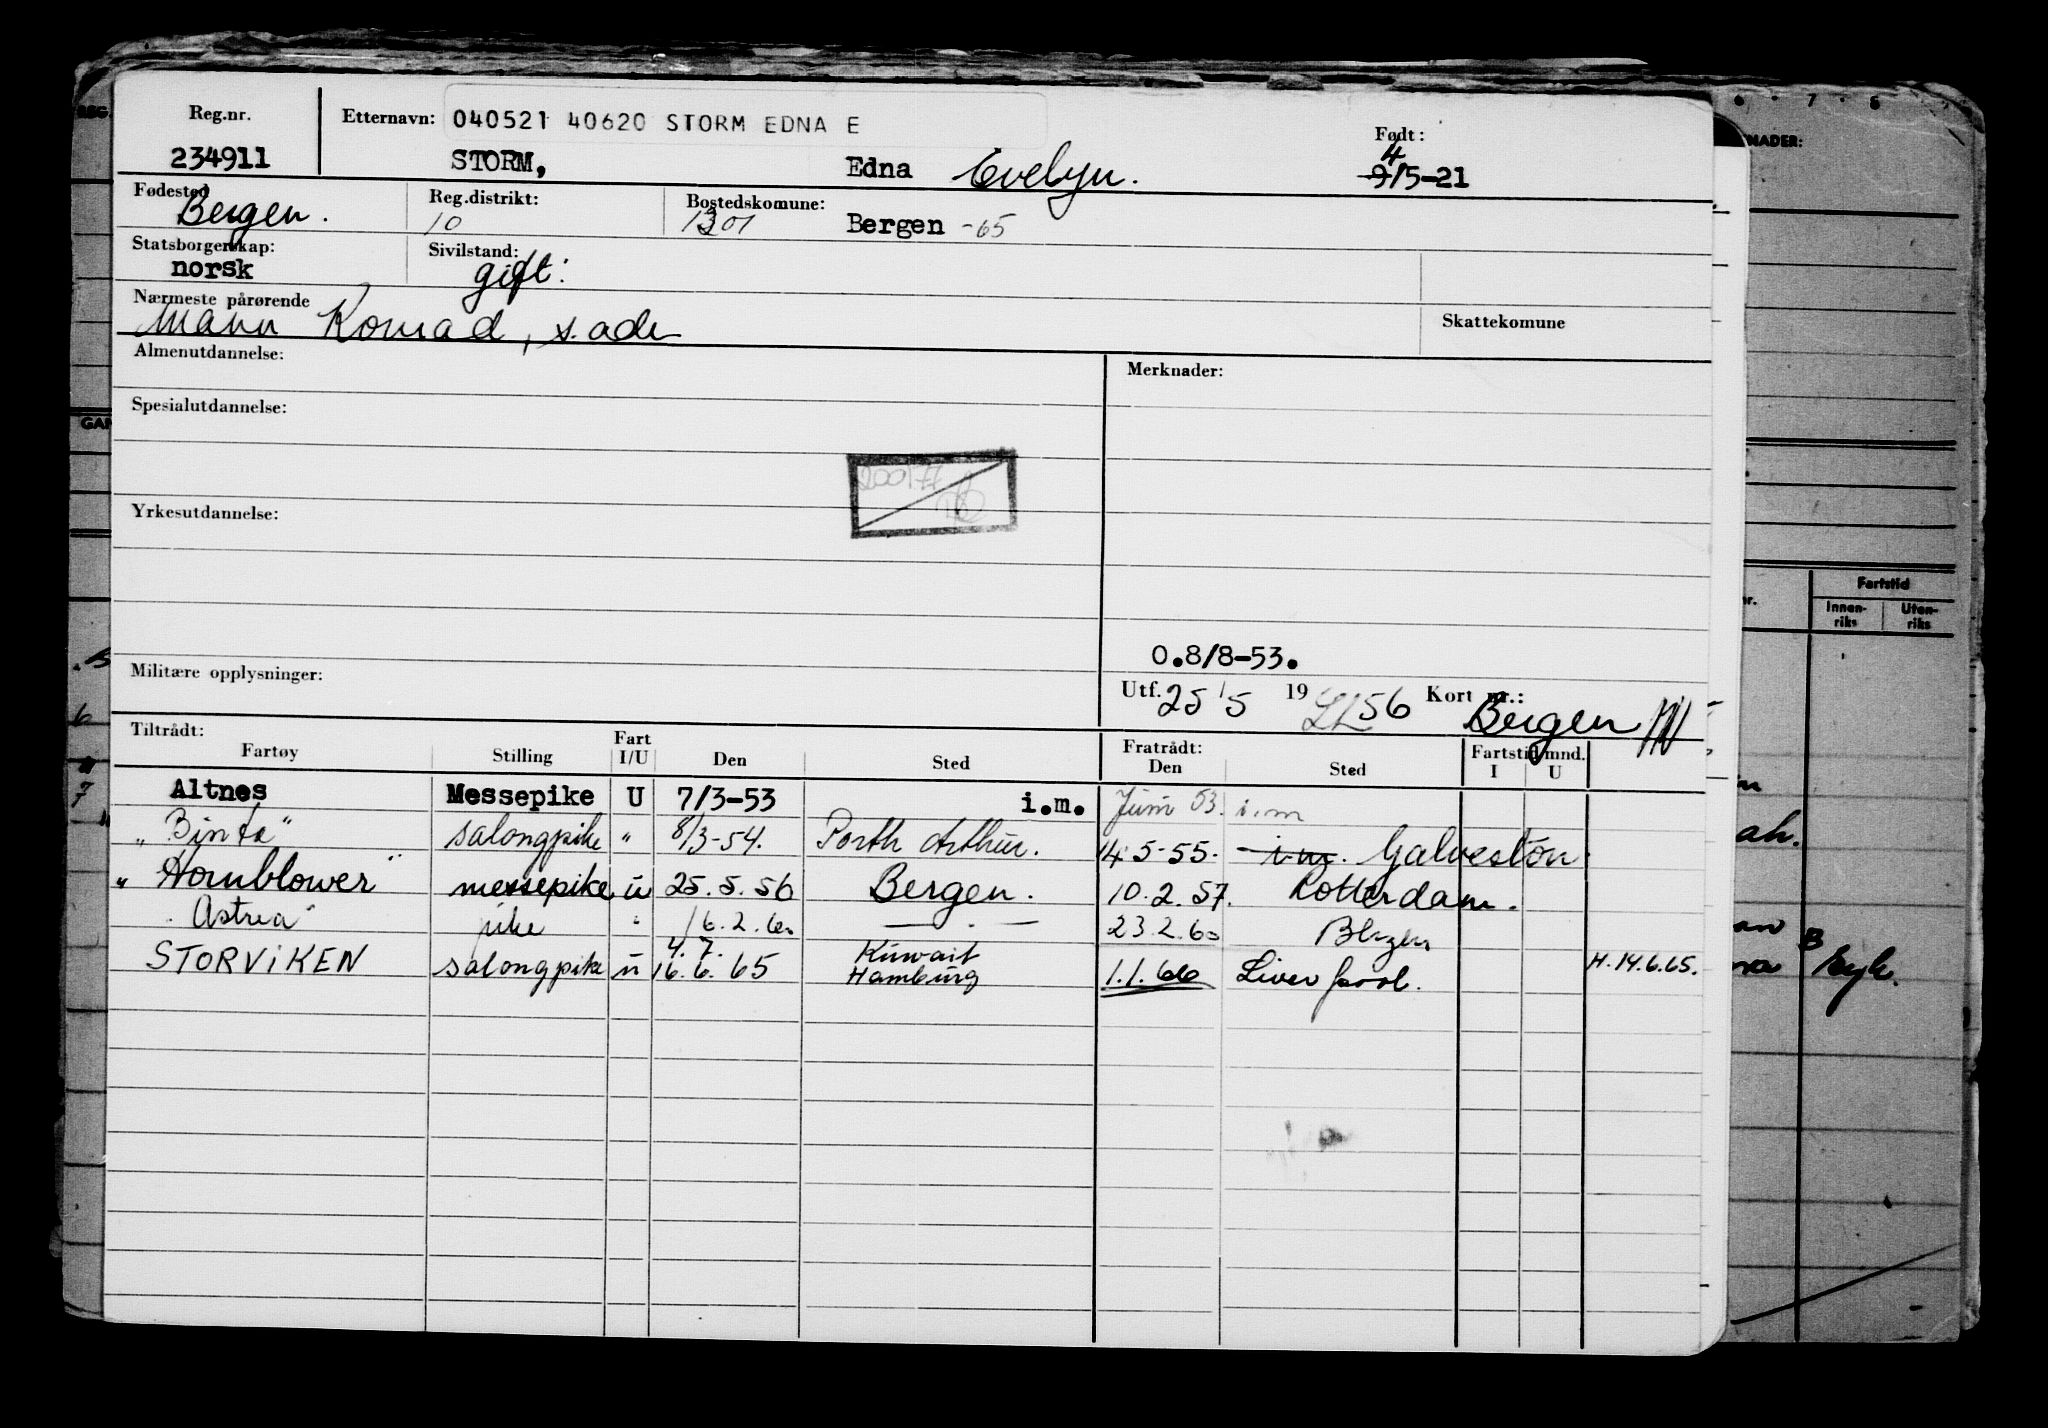 Reg.nr. Etternavn: 040521 40620 STORM EDNA E Født:
234911 STORM, Edna Evelyn. 4
9/5-21
Fødested Reg.distrikt: Bostedskomune:
Bergen. 10 1301 Bergen -65
Statsborgerskap: Sivilstand:
norsk gift.
Nærmeste pårørende Skattekomune
Mann Konrad, s. adr
Almenutdannelse: Merknader:
Spesialutdannelse:
Yrkesutdannelse:
O.8/8-53.
Militære opplysninger: Utf. 25/5 19 56 Kort nr.: Bergen
Tiltrådt: Fratrådt: Fartstid mnd.
Fartøy Stilling Fart I/U Den Sted Den Sted I U
Altnes Messepike U 7/3-53 i.m. Juni 53. i.m
"Binta" salongpike " 8/3-54. Porth Arthur. 14.5-55. i.m. Galveston.
"Hornblower" messepike u 25.5.56 Bergen. 10.2.57. Rotterdam.
"Astrea" pike " 16.2.60 — " — 23.2.60 Bergen
4.7. Kuwait
STORVIKEN salongpike u 16.6.65 Hamburg 1.1.66 Liverpool. H. 14.6.65.
NADER:
Fartstid
Innen-
riks
Uten-
riks